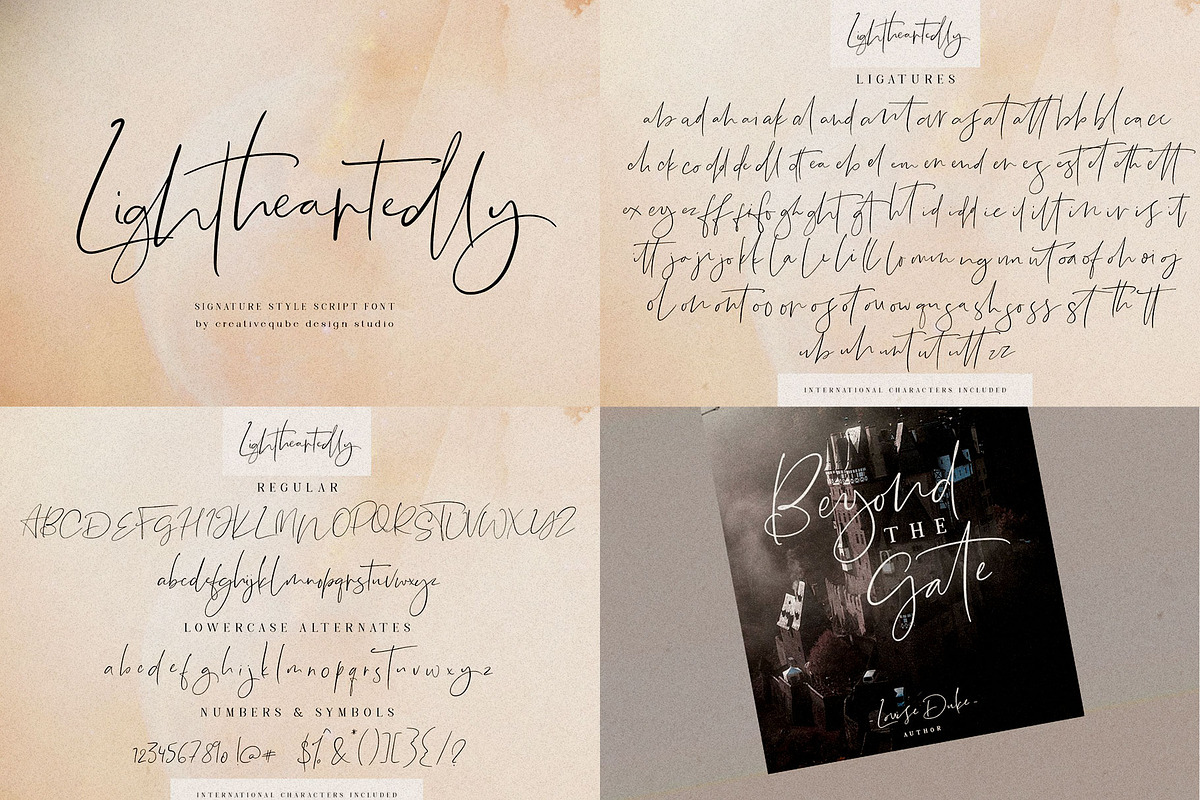 Lightheartedly
SIGNATURE STYLE SCRIPT FONT
by creativeqube design studio
Lightheartedly
LIGATURES
ab ad ah ai ak al and an nt ar as at att bb bl ca cc
ch ck co dd de dl dt ea eb el em en end er es est et eth ett
ex ey ez ff fi fo gh ght gt ht id idd ie il ilt im ir is it
itt ja ji jo kk la le li ll lo mm ng nn nt oa of oh oi oj
ol on ont oo or os ot ou ow qu sa sh so ss st th tt
ub uh unt ut utt zz
INTERNATIONAL CHARACTERS INCLUDED
Lightheartedly
REGULAR
ABCDEFGHIJKLMNOPQRSTUVWXYZ
abcdefghijklmnopqrstuvwxyz
LOWERCASE ALTERNATES
abcdefghijklmnopqrstuvwxyz
NUMBERS & SYMBOLS
1234567890 !@# $%^&*()][}{/?
INTERNATIONAL CHARACTERS INCLUDED
Beyond
THE
Gate
-Louise Duke-
AUTHOR